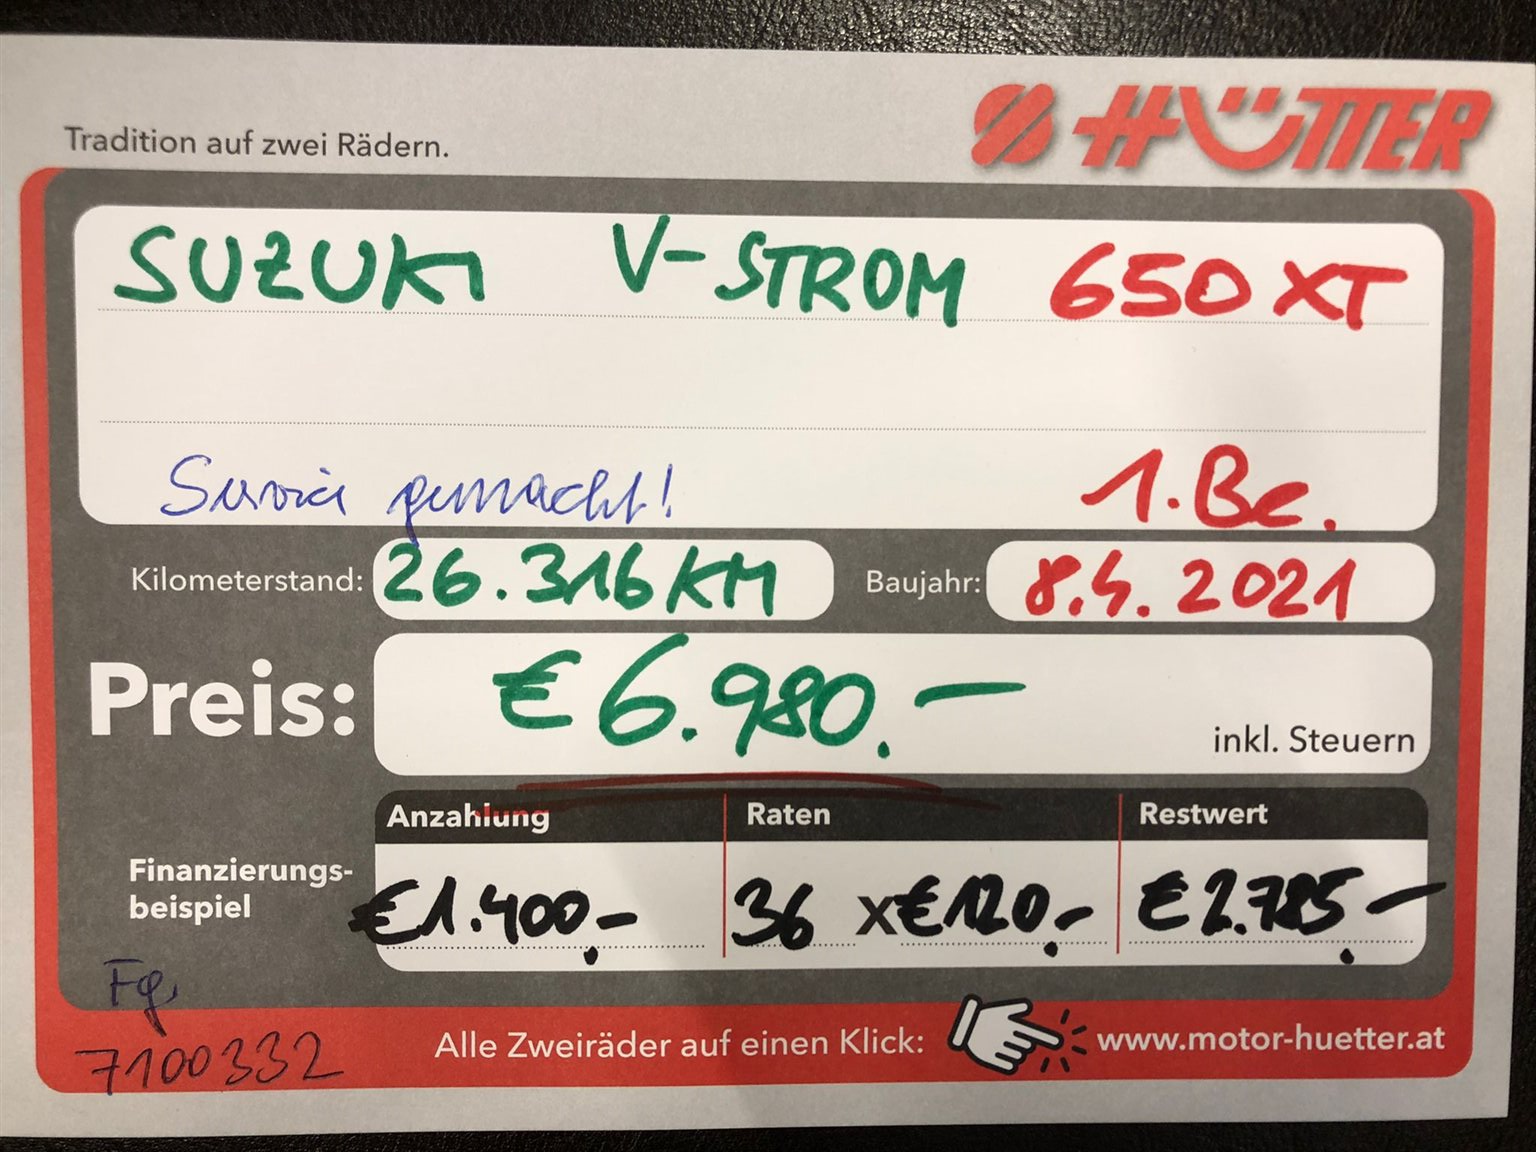 Tradition auf zwei Rädern.
HÜTTER
SUZUKI V-STROM 650 XT
Service gemacht! 1.Be.
Kilometerstand: 26.316 KM Baujahr: 8.4.2021
Preis: € 6.980.— inkl. Steuern
Anzahlung Raten Restwert
Finanzierungs-
beispiel
€ 1.400,- 36 x € 120,- € 2.785,-
Fg.
7100332
Alle Zweiräder auf einen Klick: www.motor-huetter.at